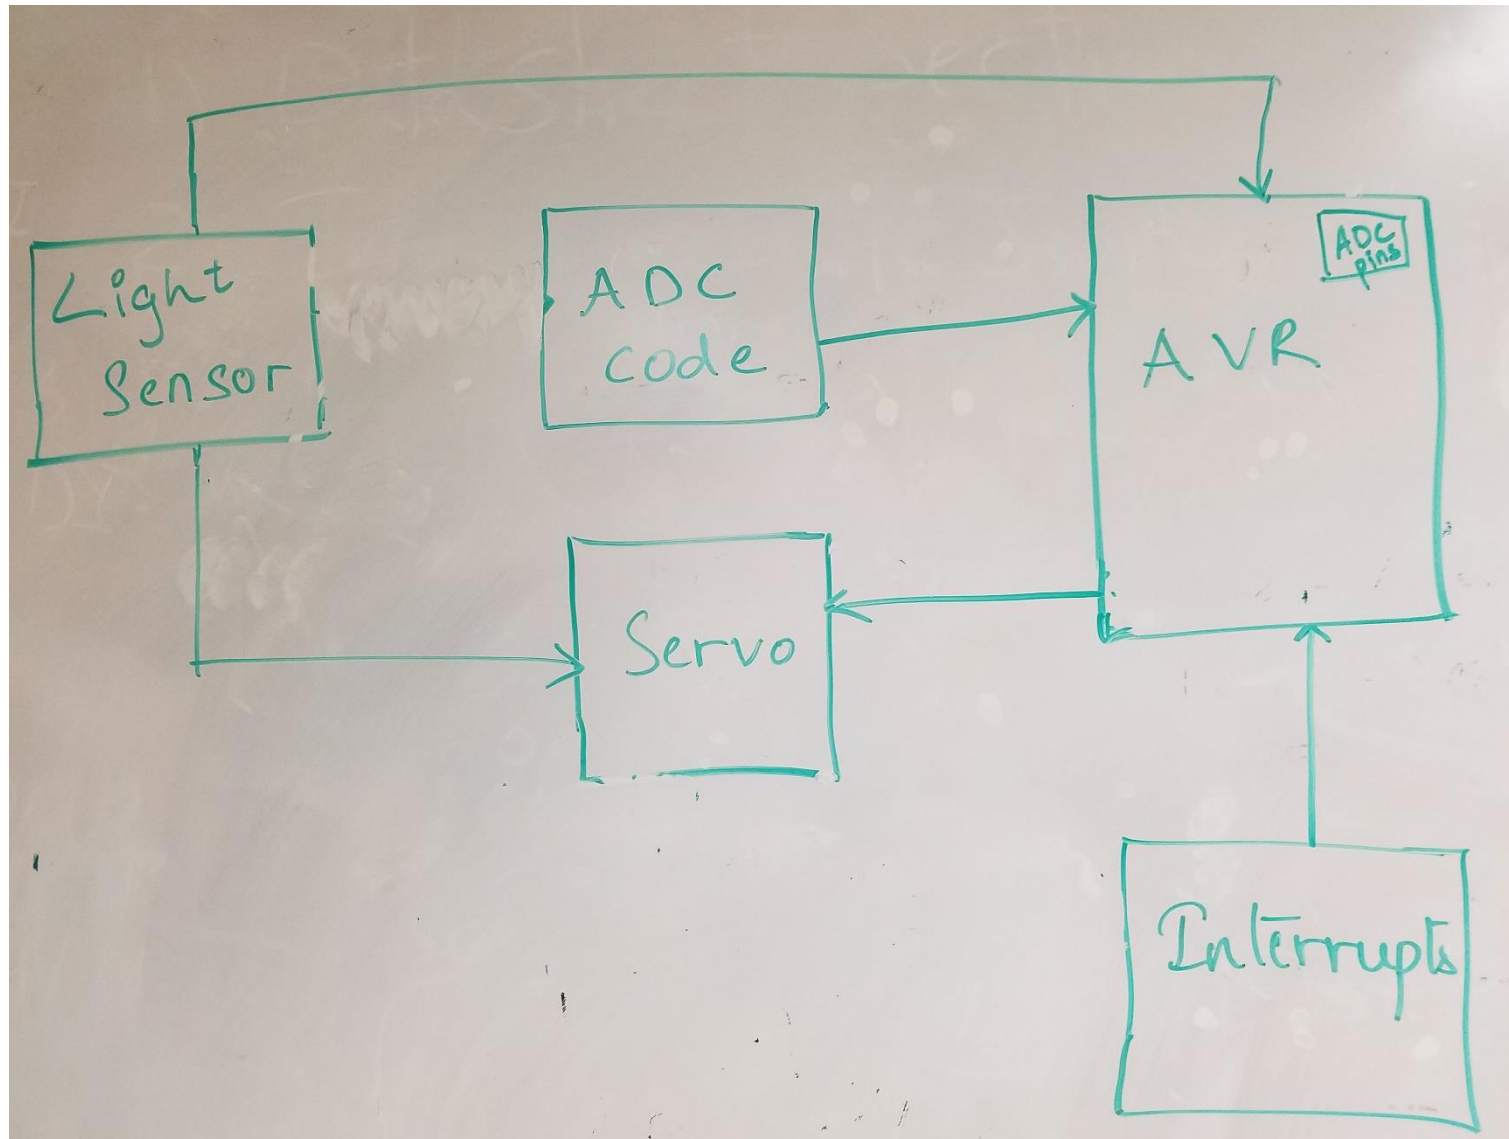 Light
Sensor
ADC
code
ADC
pins
AVR
Servo
Interrupts